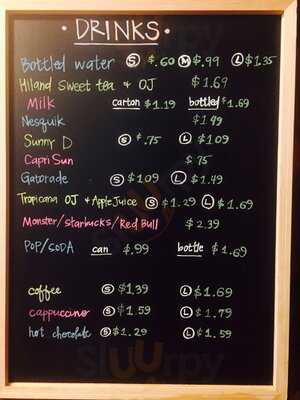 · DRINKS ·
Bottled water Ⓢ $.60 Ⓜ $.99 Ⓛ $1.35
Hiland Sweet tea & OJ $1.69
Milk carton $1.19 bottled $1.69
Nesquik $1.49
Sunny D Ⓢ $.75 Ⓛ $1.09
Capri Sun $.75
Gatorade Ⓢ $1.09 Ⓛ $1.49
Tropicana OJ & Apple Juice Ⓢ $1.29 Ⓛ $1.69
Monster/Starbucks/Red Bull $2.39
POP/SODA can $.99 bottle $1.69
coffee Ⓢ $1.39 Ⓛ $1.69
cappuccino Ⓢ $1.59 Ⓛ $1.79
hot chocolate Ⓢ $1.29 Ⓛ $1.59
sluurpy